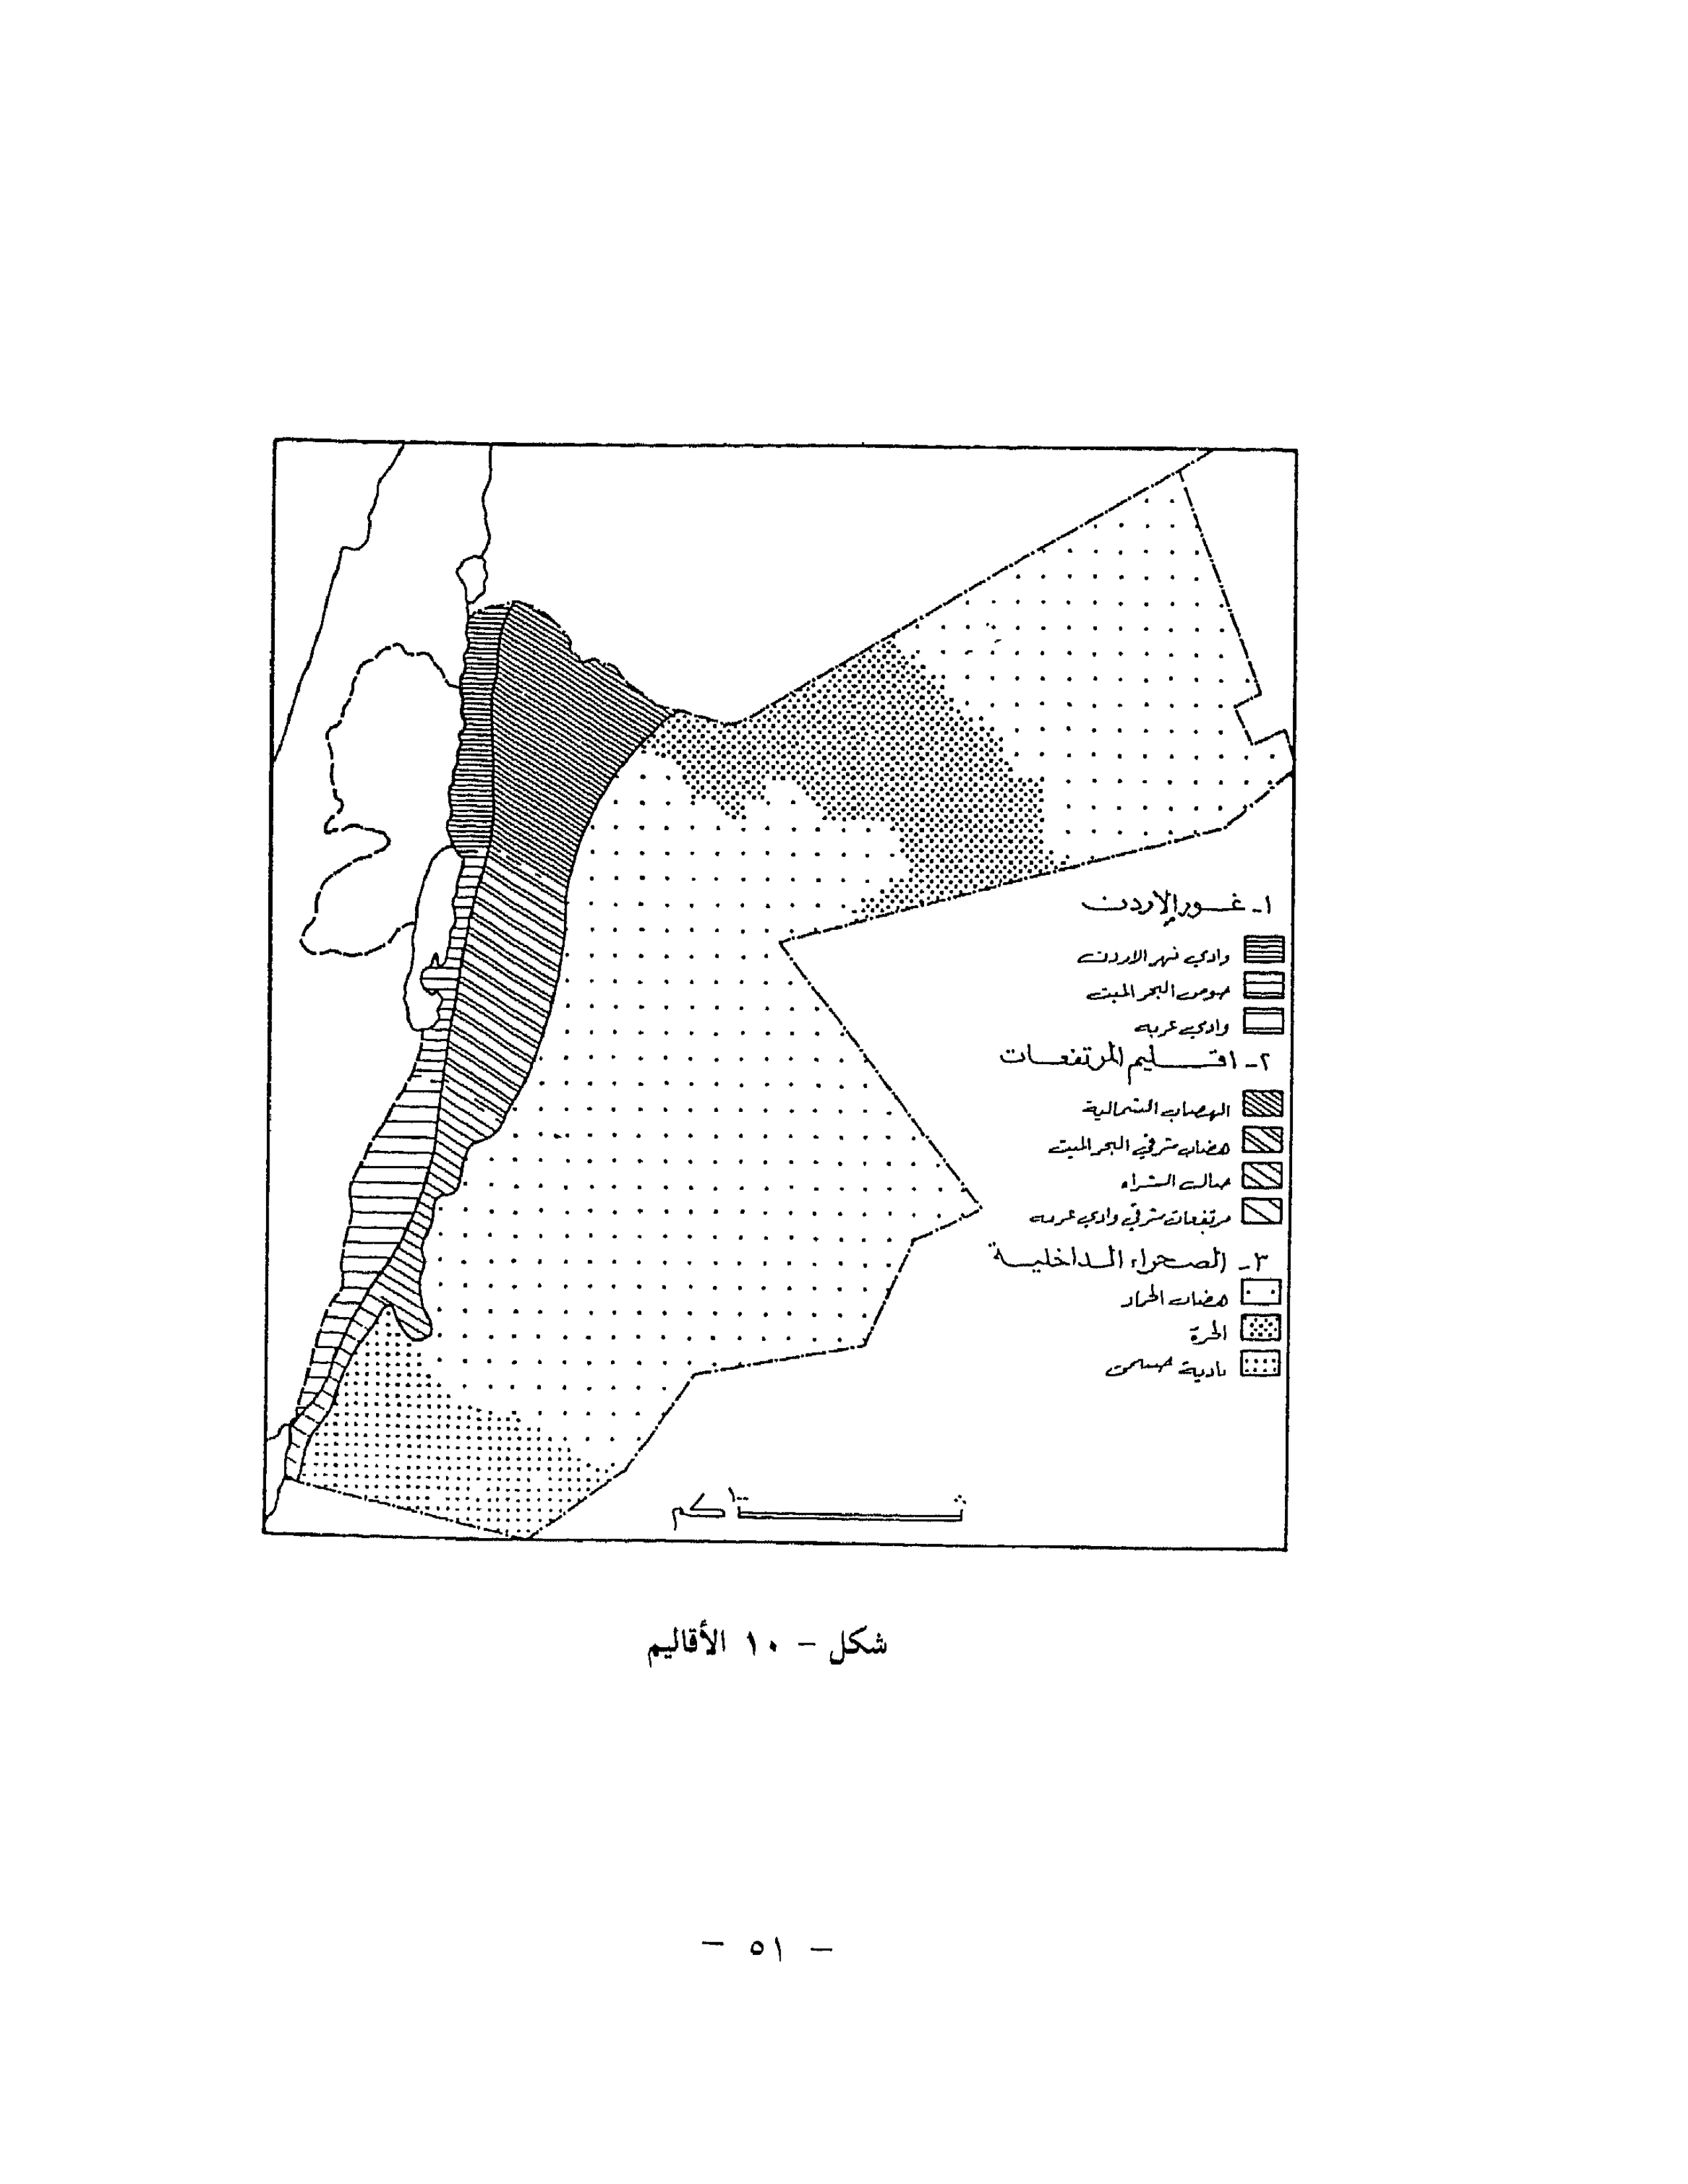 ١ـ غـور الاردن
وادي نهر الاردن
حوض البحر الميت
وادي عربه
٢ـ اقـليم المرتفعـات
الهضاب الشمالية
هضاب شرقي البحر الميت
جبال الشراه
مرتفعات شرقي وادي عربه
٣ـ الصحراء الـداخليـة
هضاب الحماد
الحرة
بادية حسمى
١٠٠ كم
شكل – ١٠ الأقاليم
– ٥١ –